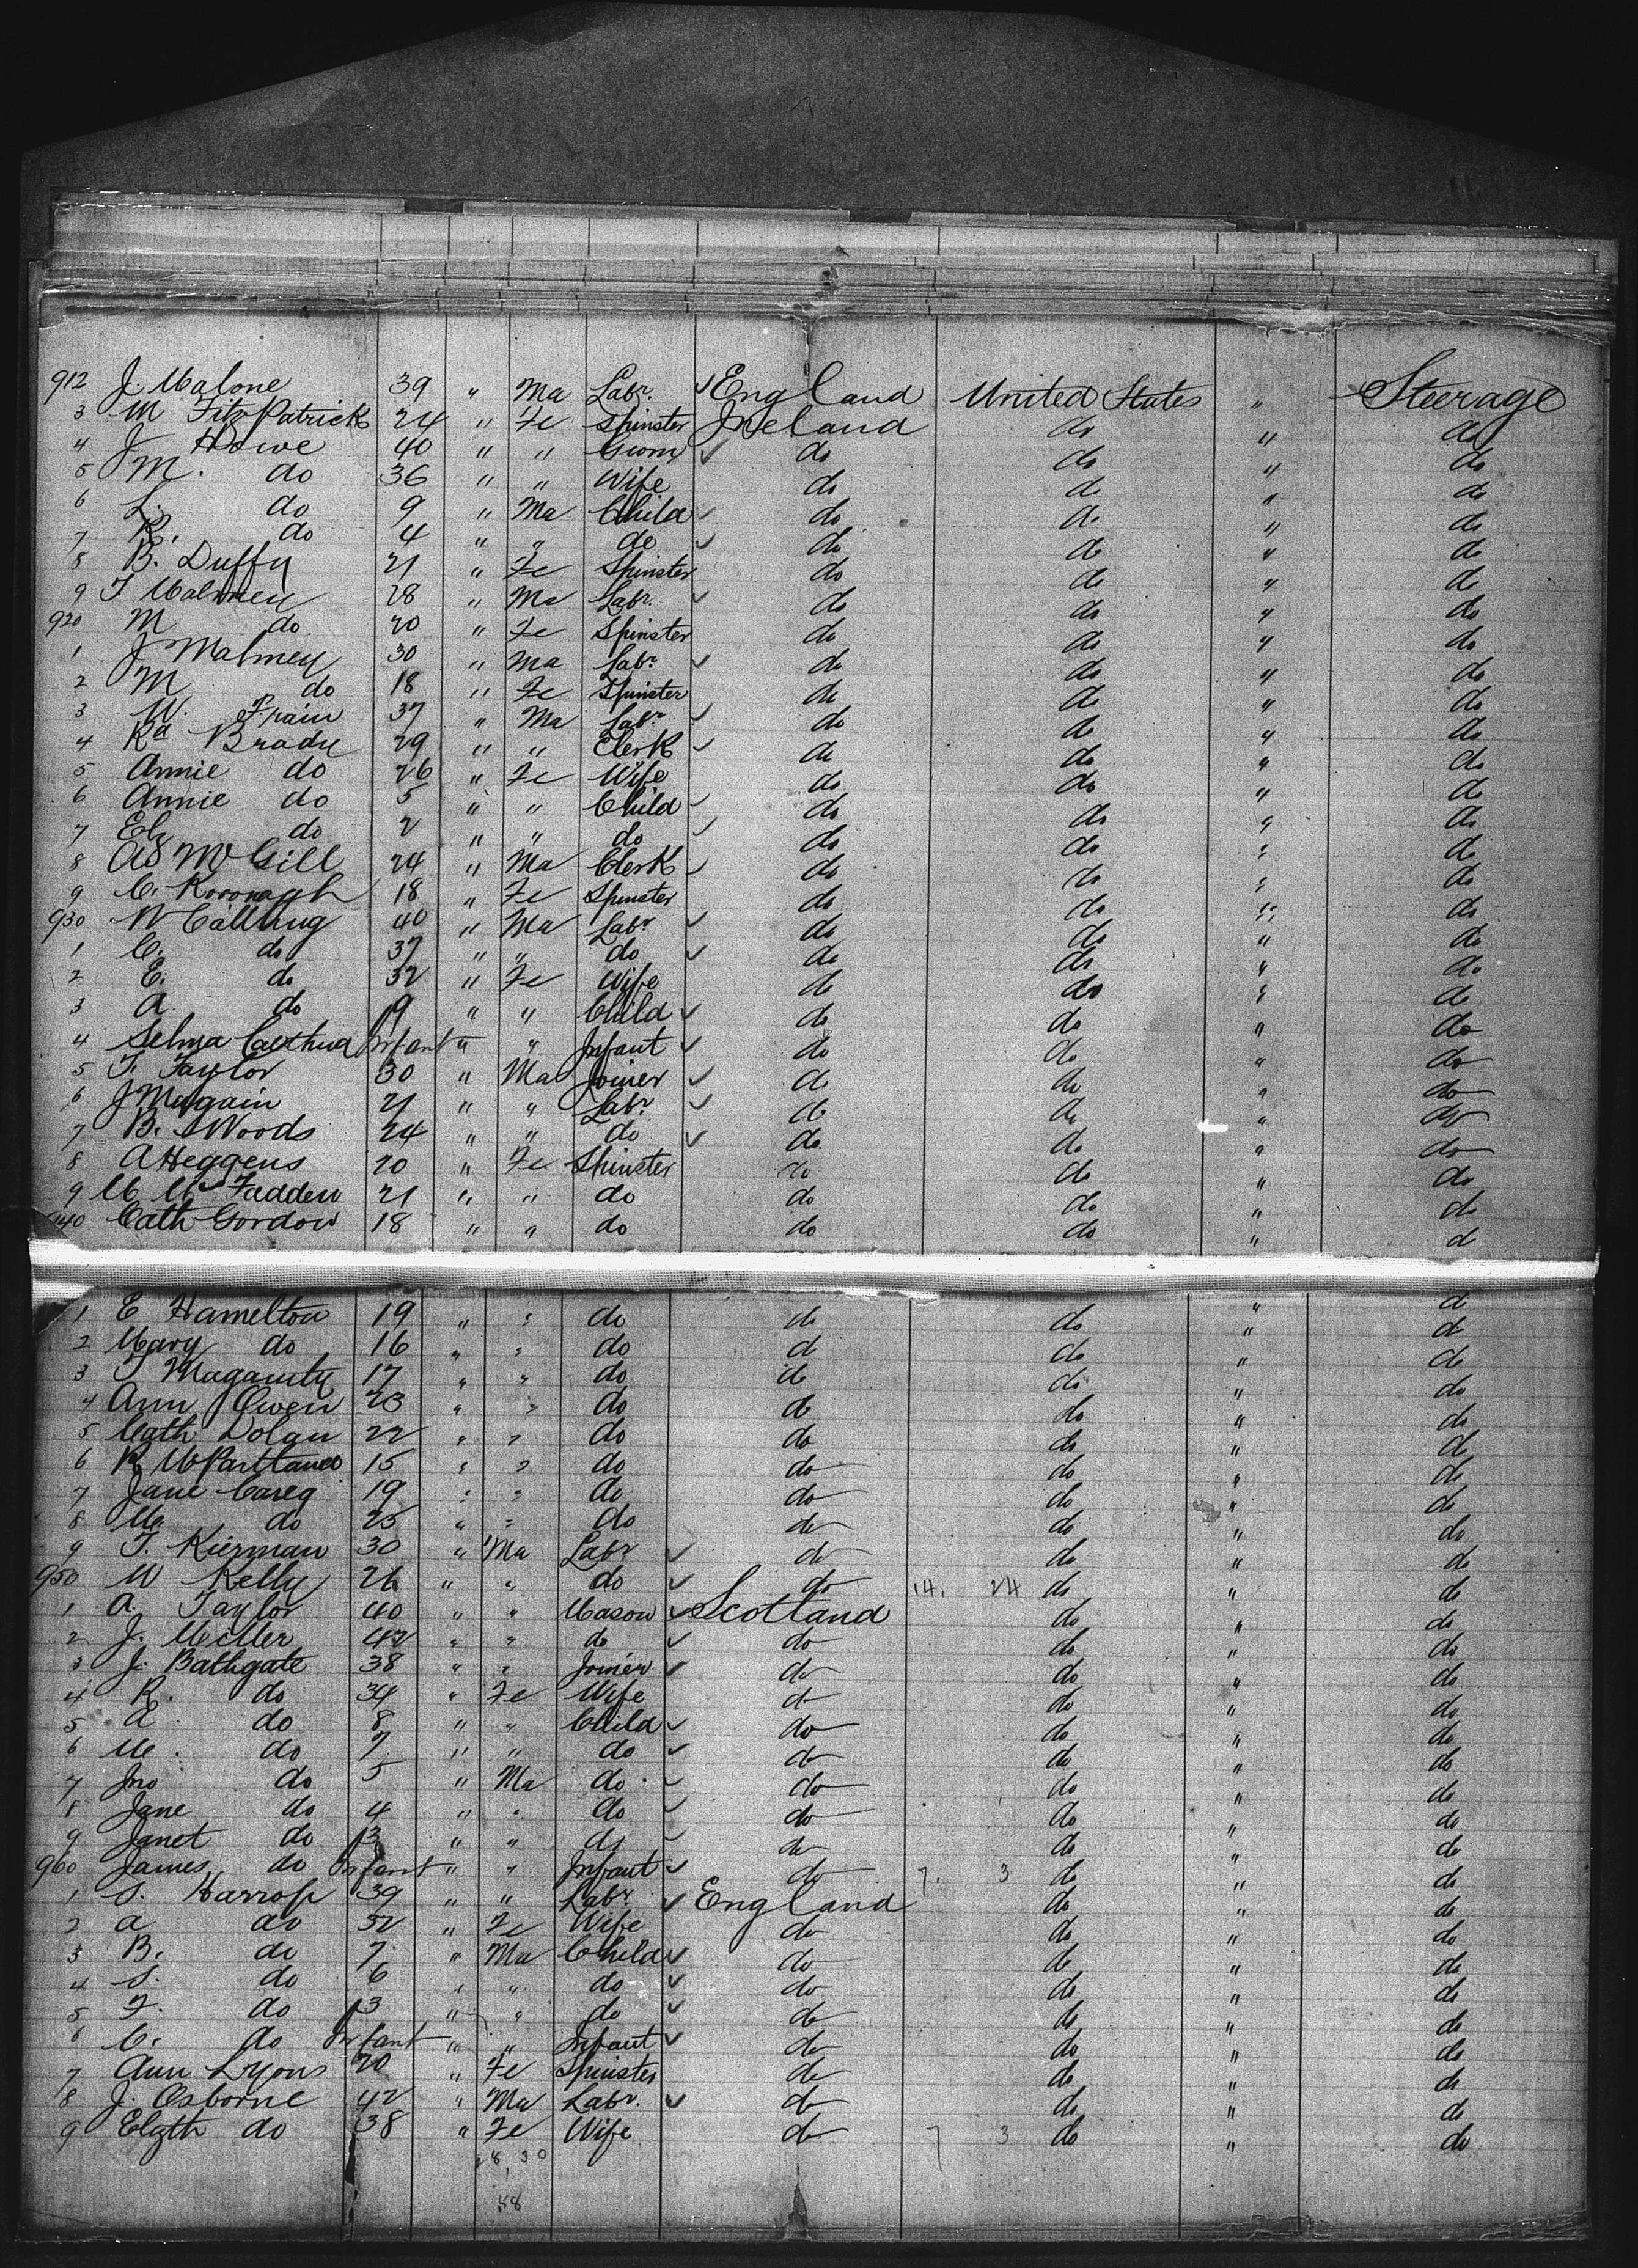 912 J. Malone 39 " Ma Labr. ✓ England United States " Steerage
3 M FitzPatrick 24 " Fe Spinster Ireland do " do
4 J Howe 40 " " Groom ✓ do do " do
5 M. do 36 " " Wife do do " do
6 L. do 9 " Ma Child ✓ do do " do
7 R. do 4 " " do ✓ do do " do
8 B. Duffy 21 " Fe Spinster do do " do
9 T 28 " Ma Labr. ✓ do do " do
920 M do 20 " Fe Spinster do do " do
1 J 30 " Ma Labr ✓ do do " do
2 M do 18 " Fe Spinster do do " do
3 W. Frain 37 " Ma Labr ✓ do do " do
4 Rd Brady 29 " " Clerk ✓ do do " do
5 Annie do 26 " Fe Wife do do " do
6 Annie do 5 " " Child ✓ do do " do
7 do 2 " " do ✓ do do " do
8 McGill 24 " Ma Clerk ✓ do do " do
9 C. 18 " Fe Spinster do do " do
930 W 40 " Ma Labr ✓ do do " do
1 C. do 37 " " do ✓ do do " do
2 E. do 32 " Fe Wife do do " do
3 A. do " " Child ✓ do do " do
4 Selma Infant " " Infant ✓ do do " do
5 T. Taylor 30 " Ma Joiner ✓ do do " do
6 J Magain 21 " " Labr. ✓ do do " do
7 B. Woods 24 " " do ✓ do do " do
8 A Heggens 20 " Fe Spinster do do " do
9 M McFadden 21 " " do do do " do
940 Cath Gordon 18 " " do do do " d
1 E Hamelton 19 " " do do do " do
2 Mary do 16 " " do do do " do
3 17 " " do do do " do
4 Ann Owen 23 " " do do do " do
5 Cath Dolan 22 " " do do do " do
6 15 " " do do do " do
7 Jane Careg 19 " " do do do " do
8 M. do 25 " " do do do " do
9 T. Kierman 30 " Ma Labr ✓ do do " do
950 W Kelly 26 " " do ✓ do 14. 24 do " do
1 A. Taylor 40 " " Mason ✓ Scotland do " do
2 J. Miller 42 " " do ✓ do do " do
3 J. Bathgate 38 " " Joiner ✓ do do " do
4 R. do 34 " Fe Wife do do " do
5 do 8 " " Child ✓ do do " do
6 M. do 7 " " do ✓ do do " do
7 Jno do 5 " Ma do ✓ do do " do
8 Jane do 4 " " do ✓ do do " do
9 Janet do 3 " " do ✓ do do " do
960 James do Infant " " Infant ✓ do 7. 3 do " do
1 S. Harrop 39 " " Labr. ✓ England do " do
2 A do 32 " Fe Wife do do " do
3 B. do 7 " Ma Child ✓ do do " do
4 S. do 6 " " do ✓ do do " do
5 F. do 3 " " do ✓ do do " do
6 C. do Infant " " Infant ✓ do do " do
7 Ann Lyons 20 " Fe Spinster do do " do
8 J. Osborne 42 " Ma Labr. ✓ do do " do
9 Elizth do 38 " Fe Wife do 7 3 do " do
58